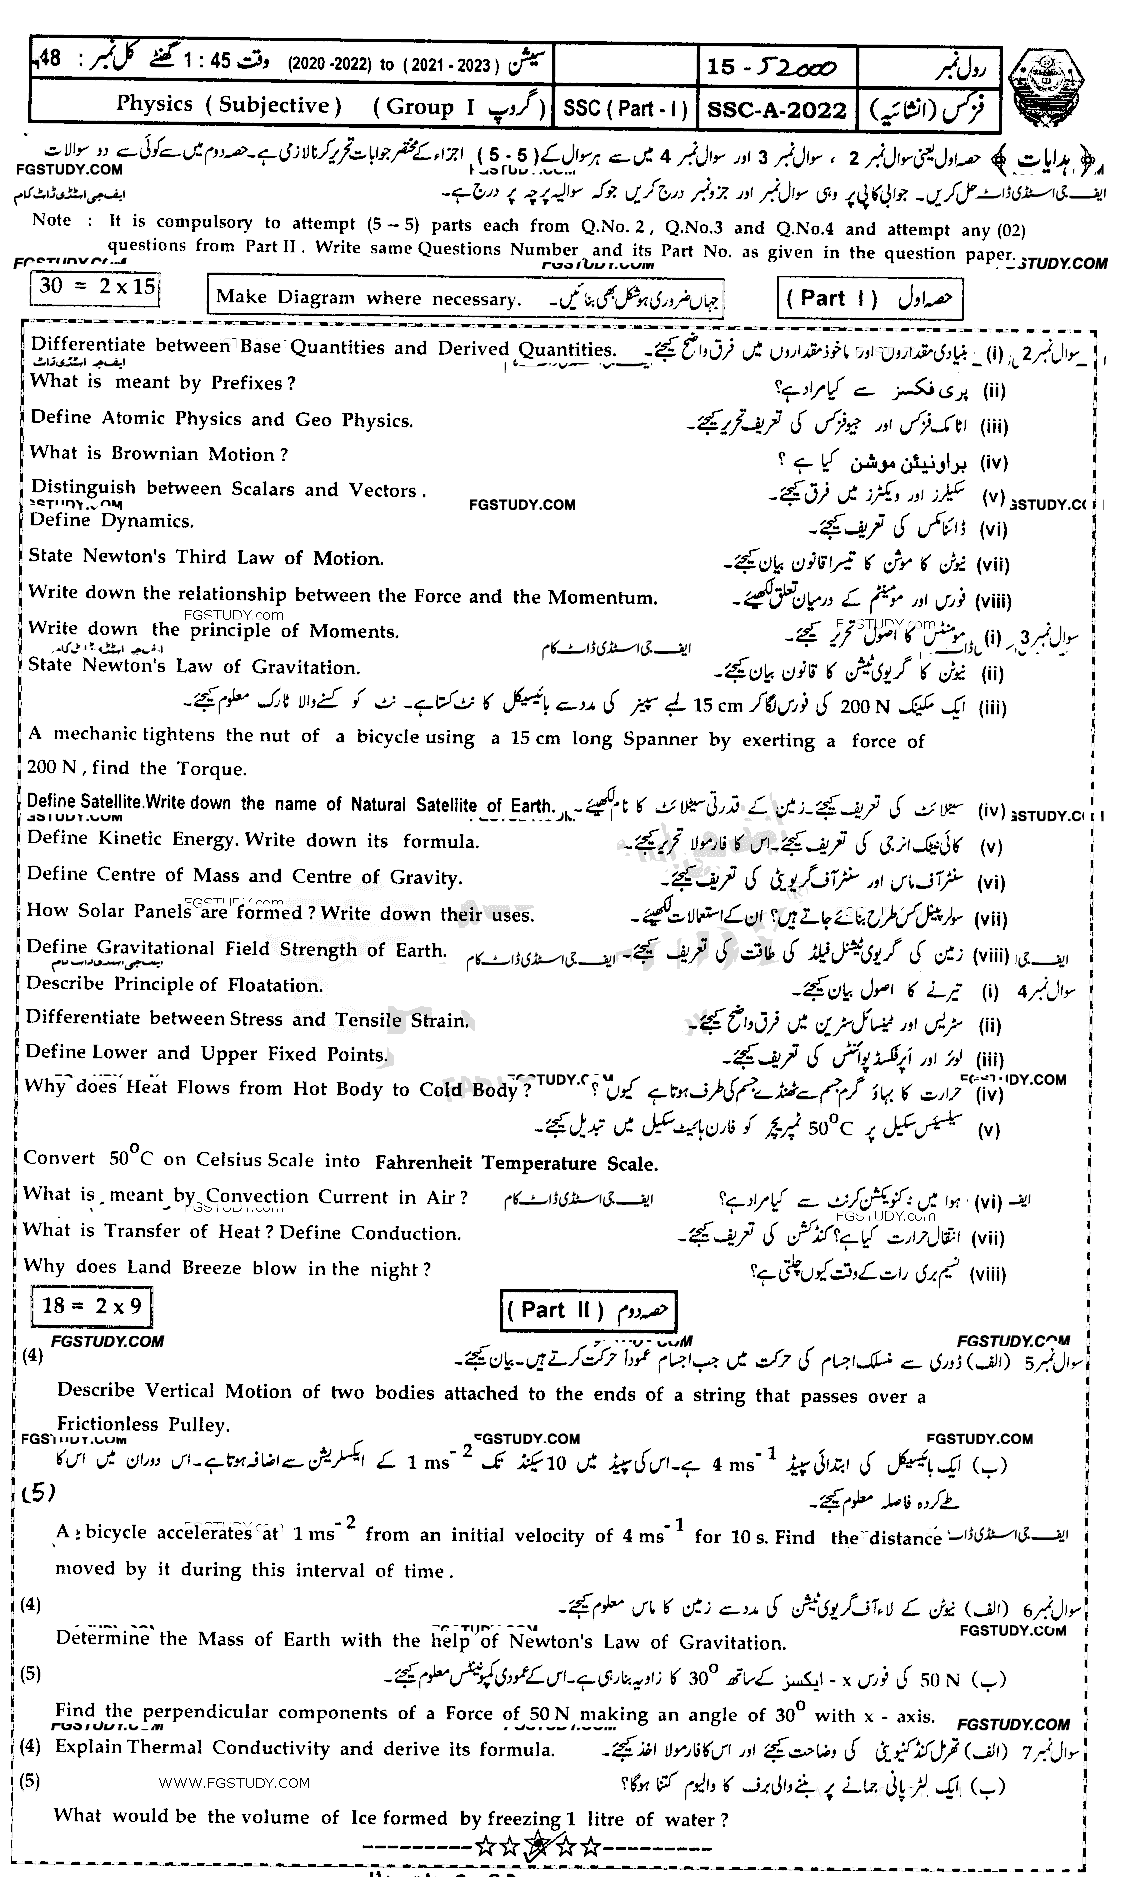 رول نمبر 15 - 52000 سیشن (2021 - 2023) to (2020 -2022) وقت 1 : 45 گھنٹے کل نمبر : 48
فزکس (انشائیہ) SSC-A-2022 SSC ( Part - I ) گروپ ( Group I ) Physics ( Subjective )
﴿ ہدایات ﴾ حصہ اول یعنی سوال نمبر 2 ، سوال نمبر 3 اور سوال نمبر 4 میں سے ہر سوال کے ( 5 - 5 ) اجزاء کے مختصر جوابات تحریر کرنا لازمی ہے۔ حصہ دوم میں سے کوئی سے دو سوالات
FGSTUDY.COM
ایف جی اسٹڈی ڈاٹ کام حل کریں۔ جوابی کاپی پر وہی سوال نمبر اور جزو نمبر درج کریں جو کہ سوالیہ پرچہ پر درج ہے۔
Note : It is compulsory to attempt (5 – 5) parts each from Q.No. 2 , Q.No.3 and Q.No.4 and attempt any (02)
questions from Part II . Write same Questions Number and its Part No. as given in the question paper.
FGSTUDY.COM
30 = 2 x 15 Make Diagram where necessary. جہاں ضروری ہو شکل بھی بنائیں۔ ( Part I ) حصہ اول
Differentiate between Base Quantities and Derived Quantities. سوال نمبر 2 (i) بنیادی مقداروں اور ماخوذ مقداروں میں فرق واضح کیجئے۔
What is meant by Prefixes ? (ii) پری فکسز سے کیا مراد ہے؟
Define Atomic Physics and Geo Physics. (iii) اٹامک فزکس اور جیوفزکس کی تعریف تحریر کیجئے۔
What is Brownian Motion ? (iv) براونیئن موشن کیا ہے ؟
Distinguish between Scalars and Vectors . (v) سکیلرز اور ویکٹرز میں فرق کیجئے۔
FGSTUDY.COM
Define Dynamics. (vi) ڈائنامکس کی تعریف کیجئے۔
State Newton's Third Law of Motion. (vii) نیوٹن کا موشن کا تیسرا قانون بیان کیجئے۔
Write down the relationship between the Force and the Momentum. (viii) فورس اور مومینٹم کے درمیان تعلق لکھیئے۔
FGSTUDY.com
Write down the principle of Moments. سوال نمبر 3 (i) مومنٹس کا اصول تحریر کیجئے۔
ایف جی اسٹڈی ڈاٹ کام
State Newton's Law of Gravitation. (ii) نیوٹن کا گریوی ٹیشن کا قانون بیان کیجئے۔
(iii) ایک مکینک 200 N کی فورس لگا کر 15 cm لمبے سپینر کی مدد سے بائیسیکل کا نٹ کستا ہے۔ نٹ کو کسنے والا ٹارک معلوم کیجئے۔
A mechanic tightens the nut of a bicycle using a 15 cm long Spanner by exerting a force of
200 N , find the Torque.
Define Satellite.Write down the name of Natural Satellite of Earth. (iv) سیٹلائٹ کی تعریف کیجئے۔ زمین کے قدرتی سیٹلائٹ کا نام لکھیئے۔
Define Kinetic Energy. Write down its formula. (v) کائی نیٹک انرجی کی تعریف کیجئے۔ اس کا فارمولا تحریر کیجئے۔
Define Centre of Mass and Centre of Gravity. (vi) سنٹر آف ماس اور سنٹر آف گریویٹی کی تعریف کیجئے۔
How Solar Panels are formed ? Write down their uses. (vii) سولر پینل کس طرح بنائے جاتے ہیں؟ ان کے استعمالات لکھیئے۔
Define Gravitational Field Strength of Earth. (viii) زمین کی گریوی ٹیشنل فیلڈ کی طاقت کی تعریف کیجئے۔ ایف جی اسٹڈی ڈاٹ کام
Describe Principle of Floatation. سوال نمبر 4 (i) تیرنے کا اصول بیان کیجئے۔
Differentiate between Stress and Tensile Strain. (ii) سٹریس اور ٹینسائل سٹرین میں فرق واضح کیجئے۔
Define Lower and Upper Fixed Points. (iii) لوئر اور اپر فکسڈ پوائنٹس کی تعریف کیجئے۔
Why does Heat Flows from Hot Body to Cold Body ? (iv) حرارت کا بہاؤ گرم جسم سے ٹھنڈے جسم کی طرف ہوتا ہے کیوں ؟
(v) سیلسیئس سکیل پر 50⁰C ٹمپریچر کو فارن ہائیٹ سکیل میں تبدیل کیجئے۔
Convert 50⁰C on Celsius Scale into Fahrenheit Temperature Scale.
What is meant by Convection Current in Air ? ایف جی اسٹڈی ڈاٹ کام (vi) ہوا میں کنویکشن کرنٹ سے کیا مراد ہے؟
FGSTUDY.com
What is Transfer of Heat ? Define Conduction. (vii) انتقال حرارت کیا ہے؟ کنڈکشن کی تعریف کیجئے۔
Why does Land Breeze blow in the night ? (viii) نسیم بری رات کے وقت کیوں چلتی ہے؟
18 = 2 x 9 ( Part II ) حصہ دوم
FGSTUDY.COM FGSTUDY.COM
(4) سوال نمبر 5 (الف) ڈوری سے منسلک اجسام کی حرکت میں جب اجسام عموداً حرکت کرتے ہیں۔ بیان کیجئے۔
Describe Vertical Motion of two bodies attached to the ends of a string that passes over a
Frictionless Pulley.
FGSTUDY.COM FGSTUDY.COM FGSTUDY.COM
(ب) ایک بائیسیکل کی ابتدائی سپیڈ 4 ms⁻¹ ہے۔ اس کی سپیڈ میں 10 سیکنڈ تک 1 ms⁻² کے ایکسلریشن سے اضافہ ہوتا ہے۔ اس دوران میں اس کا
(5) طے کردہ فاصلہ معلوم کیجئے۔
A bicycle accelerates at 1 ms⁻² from an initial velocity of 4 ms⁻¹ for 10 s. Find the distance ایف جی اسٹڈی ڈاٹ
moved by it during this interval of time .
(4) سوال نمبر 6 (الف) نیوٹن کے لاء آف گریوی ٹیشن کی مدد سے زمین کا ماس معلوم کیجئے۔
FGSTUDY.COM
Determine the Mass of Earth with the help of Newton's Law of Gravitation.
(5) (ب) 50 N کی فورس x - ایکسز کے ساتھ 30⁰ کا زاویہ بنا رہی ہے۔ اس کے عمودی کمپونینٹس معلوم کیجئے۔
Find the perpendicular components of a Force of 50 N making an angle of 30⁰ with x - axis.
FGSTUDY.COM
(4) Explain Thermal Conductivity and derive its formula. سوال نمبر 7 (الف) تھرمل کنڈکٹیویٹی کی وضاحت کیجئے اور اس کا فارمولا اخذ کیجئے۔
(5) WWW.FGSTUDY.COM (ب) ایک لٹر پانی جمانے پر بننے والی برف کا والیوم کتنا ہوگا؟
What would be the volume of Ice formed by freezing 1 litre of water ?